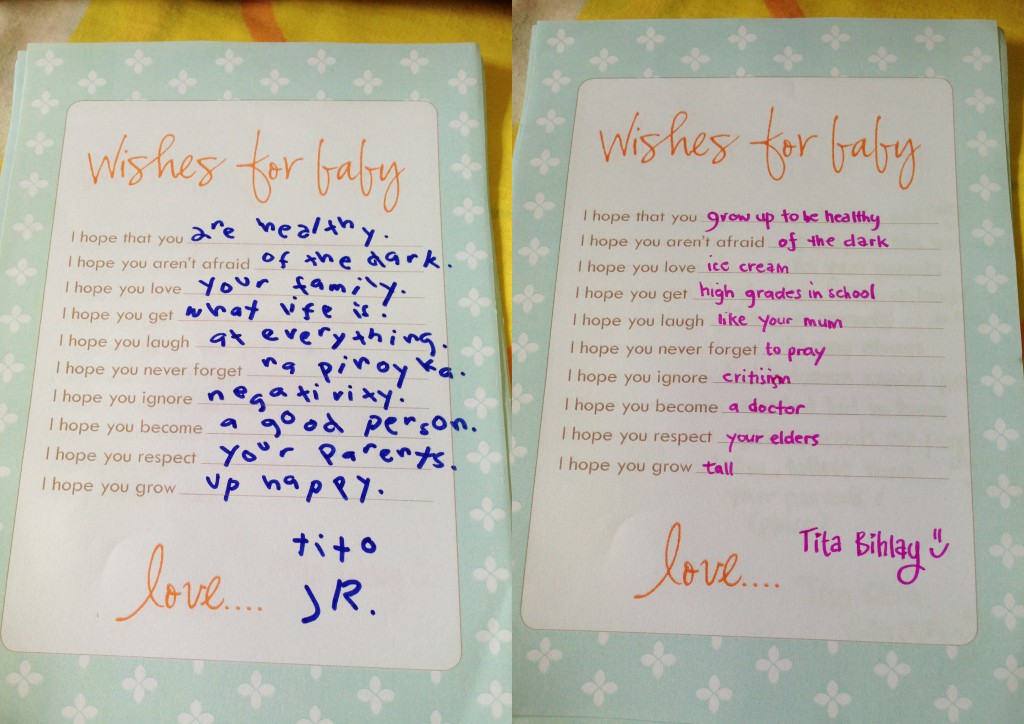 wishes for baby
I hope that you are healthy.
I hope you aren't afraid of the dark.
I hope you love your family.
I hope you get what life is.
I hope you laugh at everything.
I hope you never forget na pinoy ka.
I hope you ignore negativity.
I hope you become a good person.
I hope you respect your parents.
I hope you grow up happy.
tito
love.... JR.
wishes for baby
I hope that you grow up to be healthy
I hope you aren't afraid of the dark
I hope you love ice cream
I hope you get high grades in school
I hope you laugh like your mum
I hope you never forget to pray
I hope you ignore critisism
I hope you become a doctor
I hope you respect your elders
I hope you grow tall
Tita Bihlay
love....